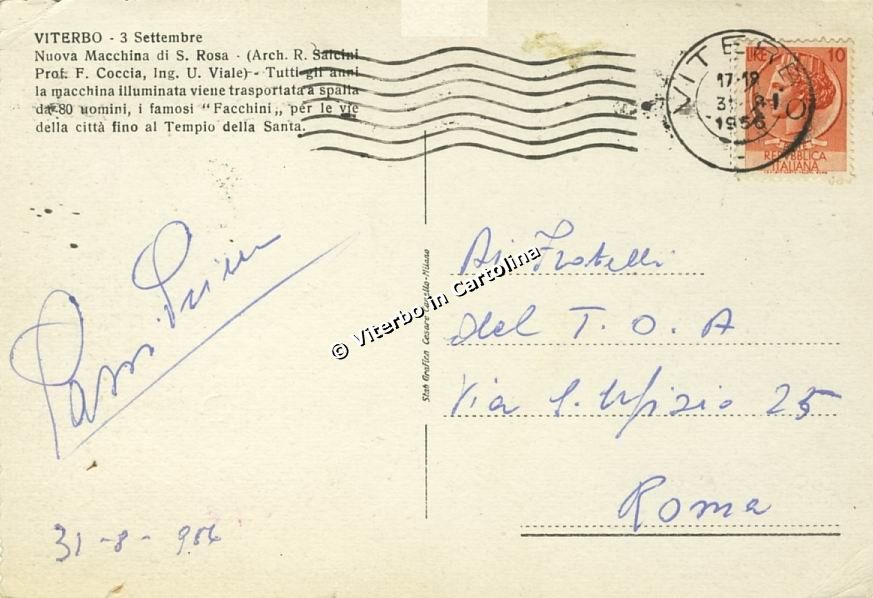 VITERBO - 3 Settembre
Nuova Macchina di S. Rosa - (Arch. R. Salcini
Prof. F. Coccia, Ing. U. Viale) - Tutti gli anni
la macchina illuminata viene trasportata a spalla
da 80 uomini, i famosi "Facchini„ per le vie
della città fino al Tempio della Santa.
VITERBO
17-19
1956
LIRE 10
REPUBBLICA
ITALIANA
Ai Fratelli
del T. O. A
Via S. Ufizio 25
Roma
31-8-956
Stab Grafico Cesare Capello-Milano
© Viterbo in Cartolina